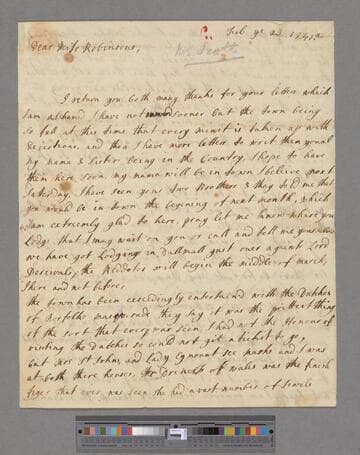 Feb ye 2d 1741/2
Dear Miss Robinsons,
I return you both many thanks for your letter which
I am asham'd I have not sooner but the Town being
so full at this time that every minuit is taken up with
Deversions, and then I have more letters to writ then yousal
my mama & Sister Being in the Country, I hope to have
them here soon my mama will be in town I believe next
Saturday, I have seen your two Brothers & they told me that
you would be in town the begening of next month, which
I am extreemly glad to here, pray let me know where you
Lodge that I may wait on you or call and tell me yourselves
we have got Lodgings in Pallmall just over against Lord
the Riddotos will begin the middle of march,
there and not before,
the town has been exceedingly entertaind with the Dutches
of Norfolks masquerade they say it was the prittiest thing
of the sort that ever was seen I had not the Honour of
visiting the Dutches so could not get a ticket to go,
but Mrs St John, and Lady Egmount see masks and I was
at both there houses, the Princess of wales was the finest
figer that ever was seen she had a vast number of Jewels